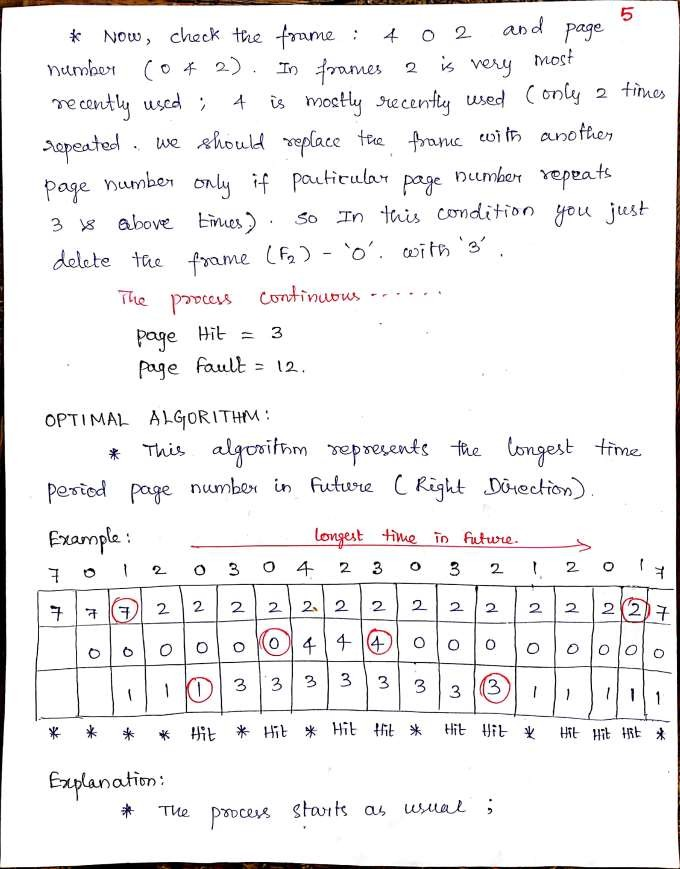 5
* Now, check the frame : 4 0 2 and page
number (0 4 2). In frames 2 is very most
recently used ; 4 is mostly recently used (only 2 times
repeated. we should replace the frame with another
page number only if particular page number repeats
3 is above times). So In this condition you just
delete the frame (F2) - '0'. with '3'.
The process continuous - - - - - -
page Hit = 3
page fault = 12.
OPTIMAL ALGORITHM:
* This algorithm represents the longest time
period page number in Future (Right Direction).
Example: longest time in future.
7 0 1 2 0 3 0 4 2 3 0 3 2 1 2 0 1 7
7 7 7 2 2 2 2 2 2 2 2 2 2 2 2 2 2 7
0 0 0 0 0 0 4 4 4 0 0 0 0 0 0 0 0
1 1 1 3 3 3 3 3 3 3 3 1 1 1 1 1
* * * * Hit * Hit * Hit Hit * Hit Hit * Hit Hit Hit *
Explanation:
* The process starts as usual ;